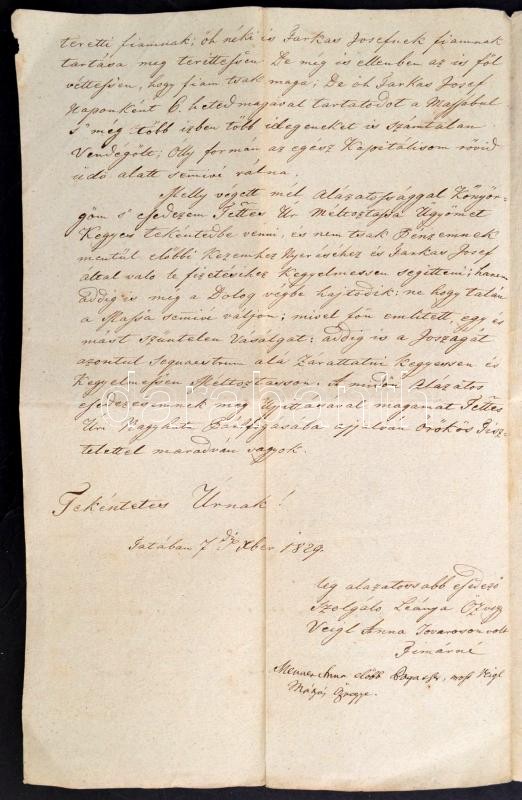 teretti fiamnak; óh néki is Farkas Josefnek fiamnak
tartása meg teréttessen. De meg is ellenben az is föl
vétessen, hogy fiam tsak maga; De óh Farkas Josef
Naponként 6. heted magával tartatodot a Massabul
S' még több izben több idegeneket is számtalan
Vendégölt; Olly formán az egész Kapitálisom rövid
üdö alatt semivé válna.
Melly végett mél alázatossággal Könyör-
göm s' esedezem Tettes Úr Méltoztassa Ügyömet
Kegyes tekéntedbe venni, és nem tsak Pénzemnek
mentül elöbbi Kezemhez Nyeréséhez és Farkas Josef
által való le fizetéséhez Kegyelmessen segétteni; hanem
addig is még a Dolog végbe hajtódik: ne hogy talán
a Massa semivé váljon; mivel fön emlitett egy és
mást szüntelen Vasálgat: addig is a Joszágát
azontúl Sequestrum alá Zárattatni Kegyessen és
Kegyelmessen Méltoztasson. A midön Alázatos
esedezésemnek meg Ujjittásával magamat Tettes
Úri Nagyhatu Pártfogásába ajjálván Örökös Tisz-
telettel maradván vagyok.
Tekéntetes Úrnak!
Tatában 7dik Xber 1829.
leg alázatossabb esedezö
Szolgáló Leánya Özvegy
Veigl Anna Tovaroson volt
Timárné
Anna elöbb most Veigl
Mátyás Özvegye.